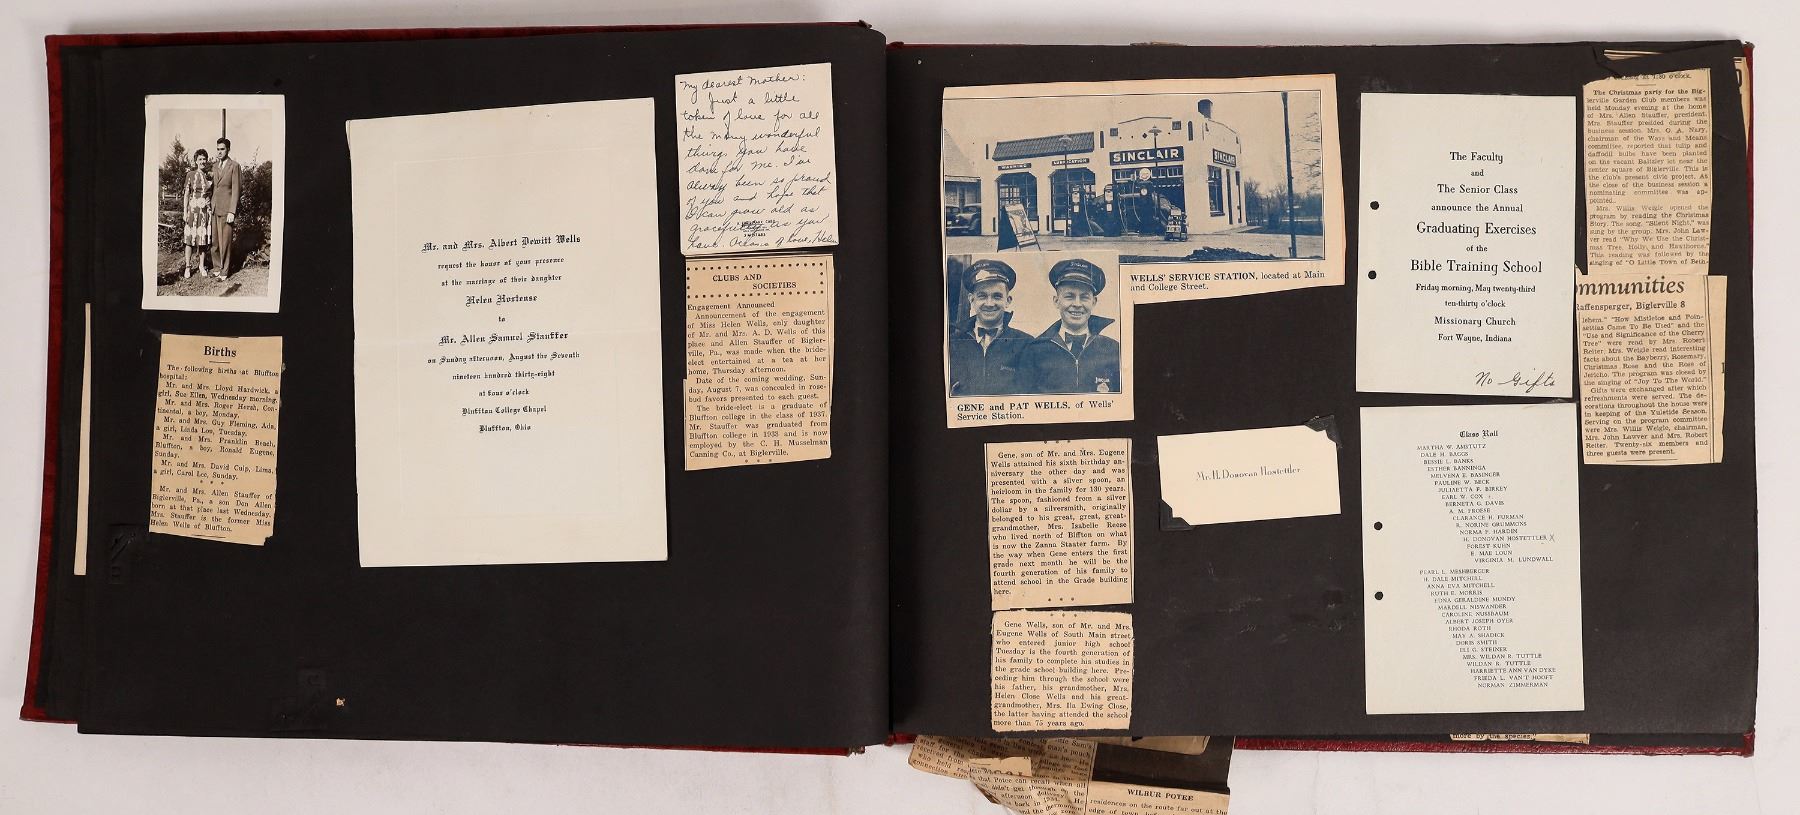 Births
The following births at Bluffton
hospital:
Mr. and Mrs. Lloyd Hardwick, a
girl, Sue Ellen, Wednesday morning.
Mr. and Mrs. Roger Hersh, Con-
tinental, a boy, Monday.
Mr. and Mrs. Guy Fleming, Ada,
a girl, Linda Lou, Tuesday.
Mr. and Mrs. Franklin Beach,
Bluffton, a boy, Ronald Eugene,
Sunday.
Mr. and Mrs. David Culp, Lima,
a girl, Carol Lee, Sunday.
* * *
Mr. and Mrs. Allen Stauffer of
Biglerville, Pa., a son Don Allen
born at that place last Wednesday.
Mrs. Stauffer is the former Miss
Helen Wells of Bluffton.
Mr. and Mrs. Albert Dewitt Wells
request the honor of your presence
at the marriage of their daughter
Helen Hortense
to
Mr. Allen Samuel Stauffer
on Sunday afternoon, August the Seventh
nineteen hundred thirty-eight
at four o'clock
Bluffton College Chapel
Bluffton, Ohio
My dearest Mother:
Just a little
token of love for all
the many wonderful
things you have
done for me. I've
always been so proud
of you and hope that
I can grow old as
gracefully as you
have. Oceans of love, Helen
CLUBS AND
SOCIETIES
Engagement Announced
Announcement of the engagement
of Miss Helen Wells, only daughter
of Mr. and Mrs. A. D. Wells of this
place and Allen Stauffer of Bigler-
ville, Pa., was made when the bride-
elect entertained at a tea at her
home, Thursday afternoon.
Date of the coming wedding, Sun-
day, August 7, was concealed in rose-
bud favors presented to each guest.
The bride-elect is a graduate of
Bluffton college in the class of 1937.
Mr. Stauffer was graduated from
Bluffton college in 1938 and is now
employed by the C. H. Musselman
Canning Co., at Biglerville.
* * *
WASHING
LUBRICATION
SINCLAIR
SINCLAIR
WELLS' SERVICE STATION, located at Main
and College Street.
GENE and PAT WELLS, of Wells'
Service Station.
Gene, son of Mr. and Mrs. Eugene
Wells attained his sixth birthday an-
niversary the other day and was
presented with a silver spoon, an
heirloom in the family for 130 years.
The spoon, fashioned from a silver
dollar by a silversmith, originally
belonged to his great, great, great-
grandmother, Mrs. Isabelle Reese
who lived north of Bluffton on what
is now the Zanna Staater farm. By
the way when Gene enters the first
grade next month he will be the
fourth generation of his family to
attend school in the Grade building
here.
* * *
Gene Wells, son of Mr. and Mrs.
Eugene Wells of South Main street
who entered junior high school
Tuesday is the fourth generation of
his family to complete his studies in
the grade school building here. Pre-
ceding him through the school were
his father, his grandmother, Mrs.
Helen Close Wells and his great-
grandmother, Mrs. Ila Ewing Close,
the latter having attended the school
more than 75 years ago.
Mr. H. Donovan Hostettler
The Faculty
and
The Senior Class
announce the Annual
Graduating Exercises
of the
Bible Training School
Friday morning, May twenty-third
ten-thirty o'clock
Missionary Church
Fort Wayne, Indiana
No Gifts
Class Roll
MARTHA W. AMSTUTZ
DALE H. BAGGS
BESSIE L. BANKS
ESTHER BANNINGA
MELVENA E. BASINGER
PAULINE W. BECK
JULIAETTA F. BIRKEY
EARL W. COX
BERNETA G. DAVIS
A. M. FROESE
CLARANCE H. FURMAN
R. NORINE GRUMMONS
NORMA P. HARDIN
H. DONOVAN HOSTETTLER X
FOREST KUHN
E. MAE LOUN
VIRGINIA M. LUNDWALL
PEARL L. MESHBERGER
H. DALE MITCHELL
ANNA EVA MITCHELL
RUTH E. MORRIS
EDNA GERALDINE MUNDY
MARDELL NISWANDER
CAROLINE NUSSBAUM
ALBERT JOSEPH OYER
RHODA ROTH
MAY A. SHADICK
DORIS SMITH
ELI G. STEINER
MRS. WILDAN R. TUTTLE
WILDAN R. TUTTLE
HARRIETTE ANN VAN DYKE
FRIEDA L. VAN'T HOOFT
NORMAN ZIMMERMAN
at 7:30 o'clock.
The Christmas party for the Big-
lerville Garden Club members was
held Monday evening at the home
of Mrs. Allen Stauffer, president.
Mrs. Stauffer presided during the
business session. Mrs. O. A. Nary,
chairman of the Ways and Means
committee, reported that tulip and
daffodil bulbs have been planted
on the vacant Baltzley lot near the
center square of Biglerville. This is
the club's present civic project. As
the close of the business session a
nominating committee was ap-
pointed.
Mrs. Willis Weigle opened the
program by reading the Christmas
Story. The song, "Silent Night," was
sung by the group. Mrs. John Law-
ver read "Why We Use the Christ-
mas Tree, Holly and Hawthorne."
This reading was followed by the
singing of "O Little Town of Beth-
mmunities
Raffensperger, Biglerville 8
lehem." "How Mistletoe and Poin-
settias Came To Be Used" and the
"Use and Significance of the Cherry
Tree" were read by Mrs. Robert
Reiter. Mrs. Weigle read interesting
facts about the Bayberry, Rosemary,
Christmas Rose and the Rose of
Jericho. The program was closed by
the singing of "Joy To The World."
Gifts were exchanged after which
refreshments were served. The de-
corations throughout the house were
in keeping of the Yuletide Season.
Serving on the program committee
were Mrs. Willis Weigle, chairman,
Mrs. John Lawver and Mrs. Robert
Reiter. Twenty-six members and
three guests were present.
more by the species.
WILBUR POTEE
residences on the route far out at the